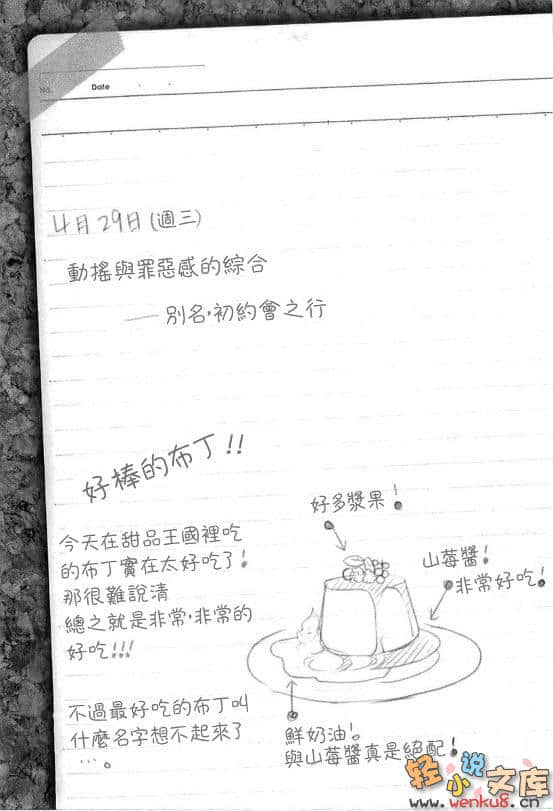 No.
Date
4月29日(週三)
動搖與罪惡感的綜合
——別名,初約會之行
好棒的布丁!!
好多漿果!
今天在甜品王國裡吃
的布丁實在太好吃了!
那很難說清
總之就是非常,非常的
好吃!!!
山莓醬!
非常好吃!
不過最好吃的布丁叫
什麼名字想不起來了
…。
鮮奶油!
與山莓醬真是絕配!
轻小说文库
www.wenku8.cn